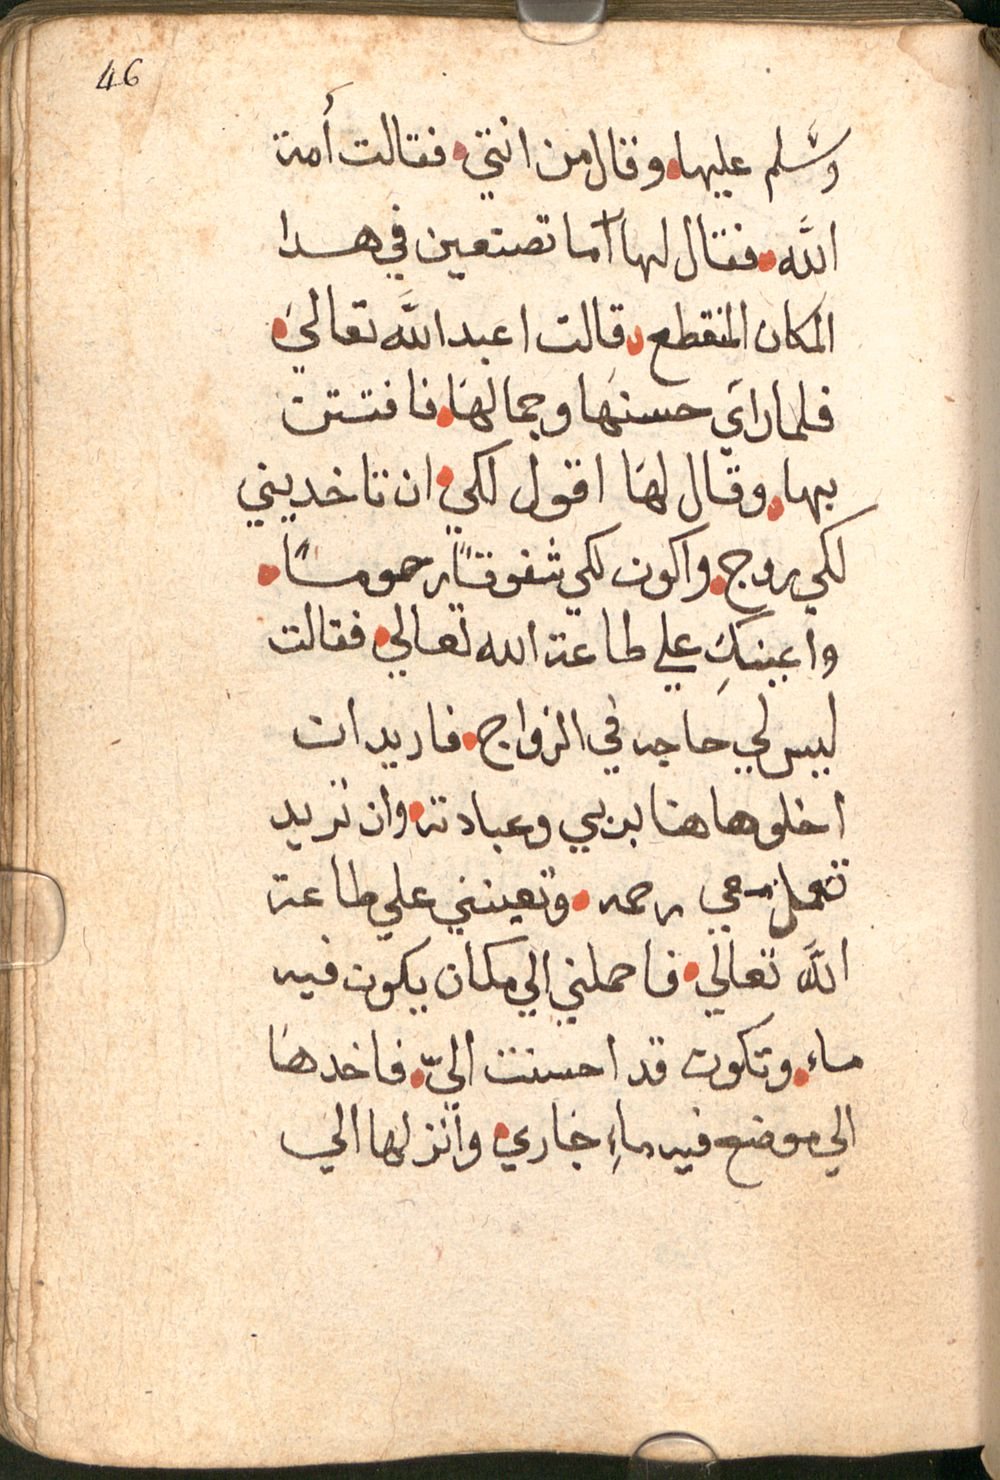 46
وسلم عليها وقال من انتي فقالت أمة
الله فقال لها أما تصنعين في هدا
المكان المنقطع قالت اعبد الله تعالي
فلما راي حسنها وجمالها فافتتن
بها وقال لها اقول لكي ان تاخديني
لكي زوج واكون لكي شفوقاً رحوماً
واعينكِ علي طاعة الله تعالي فقالت
ليس لي حاجه في الزواج فاريد ان
اخلو هاهنا بربي وعبادته وان تريد
تعمل معي رحمه وتعينني علي طاعة
الله تعالي فاحملني الي مكان يكون فيه
ماء وتكون قد احسنت اليّ فاخدها
الي موضع فيه ماءِ جاري وانزلها الي